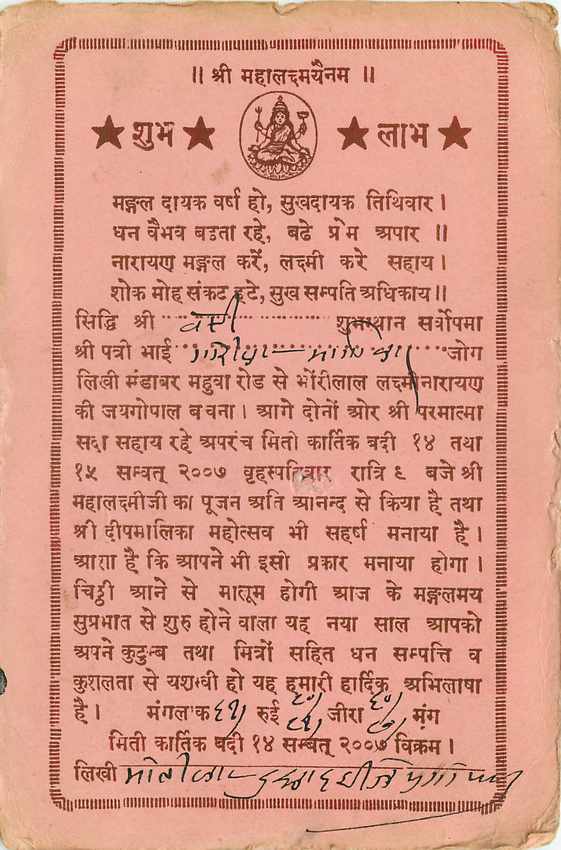 ॥ श्री महालक्ष्मयैनम ॥
★ शुभ ★ ★ लाभ ★
मङ्गल दायक वर्ष हो, सुखदायक तिथिवार ।
धन वैभव बढता रहे, बढे प्रेम अपार ॥
नारायण मङ्गल करें, लक्ष्मी करे सहाय ।
शोक मोह संकट हटे, सुख सम्पति अधिकाय ॥
सिद्धि श्री शुभस्थान सर्वोपमा
श्री पत्री भाई जोग
लिखी मंडावर महुवा रोड से भोंरीलाल लक्ष्मीनारायण
की जयगोपाल बचना । आगे दोनों ओर श्री परमात्मा
सदा सहाय रहे अपरंच मिती कार्तिक वदी १४ तथा
१५ सम्वत् २००७ वृहस्पतिवार रात्रि ६ बजे श्री
महालक्ष्मीजी का पूजन अति आनन्द से किया है तथा
श्री दीपमालिका महोत्सव भी सहर्ष मनाया है ।
आशा है कि आपने भी इसी प्रकार मनाया होगा ।
चिठ्ठी आने से मालूम होगी आज के मङ्गलमय
सुप्रभात से शुरु होने वाला यह नया साल आपको
अपने कुटुम्ब तथा मित्रों सहित धन सम्पत्ति व
कुशलता से यशस्वी हो यह हमारी हार्दिक अभिलाषा
है । मंगल रुई जीरा मंग
मिती कार्तिक वदी १४ सम्वत् २००७ विक्रम ।
लिखी